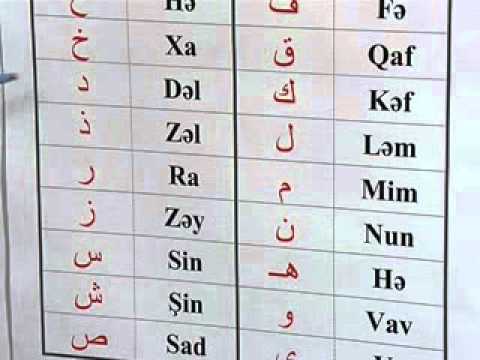 ح Hə ف Fə
خ Xa ق Qaf
د Dəl ك Kəf
ذ Zəl ل Ləm
ر Ra م Mim
ز Zəy ن Nun
س Sin هـ Hə
ش Şin و Vav
ص Sad ي